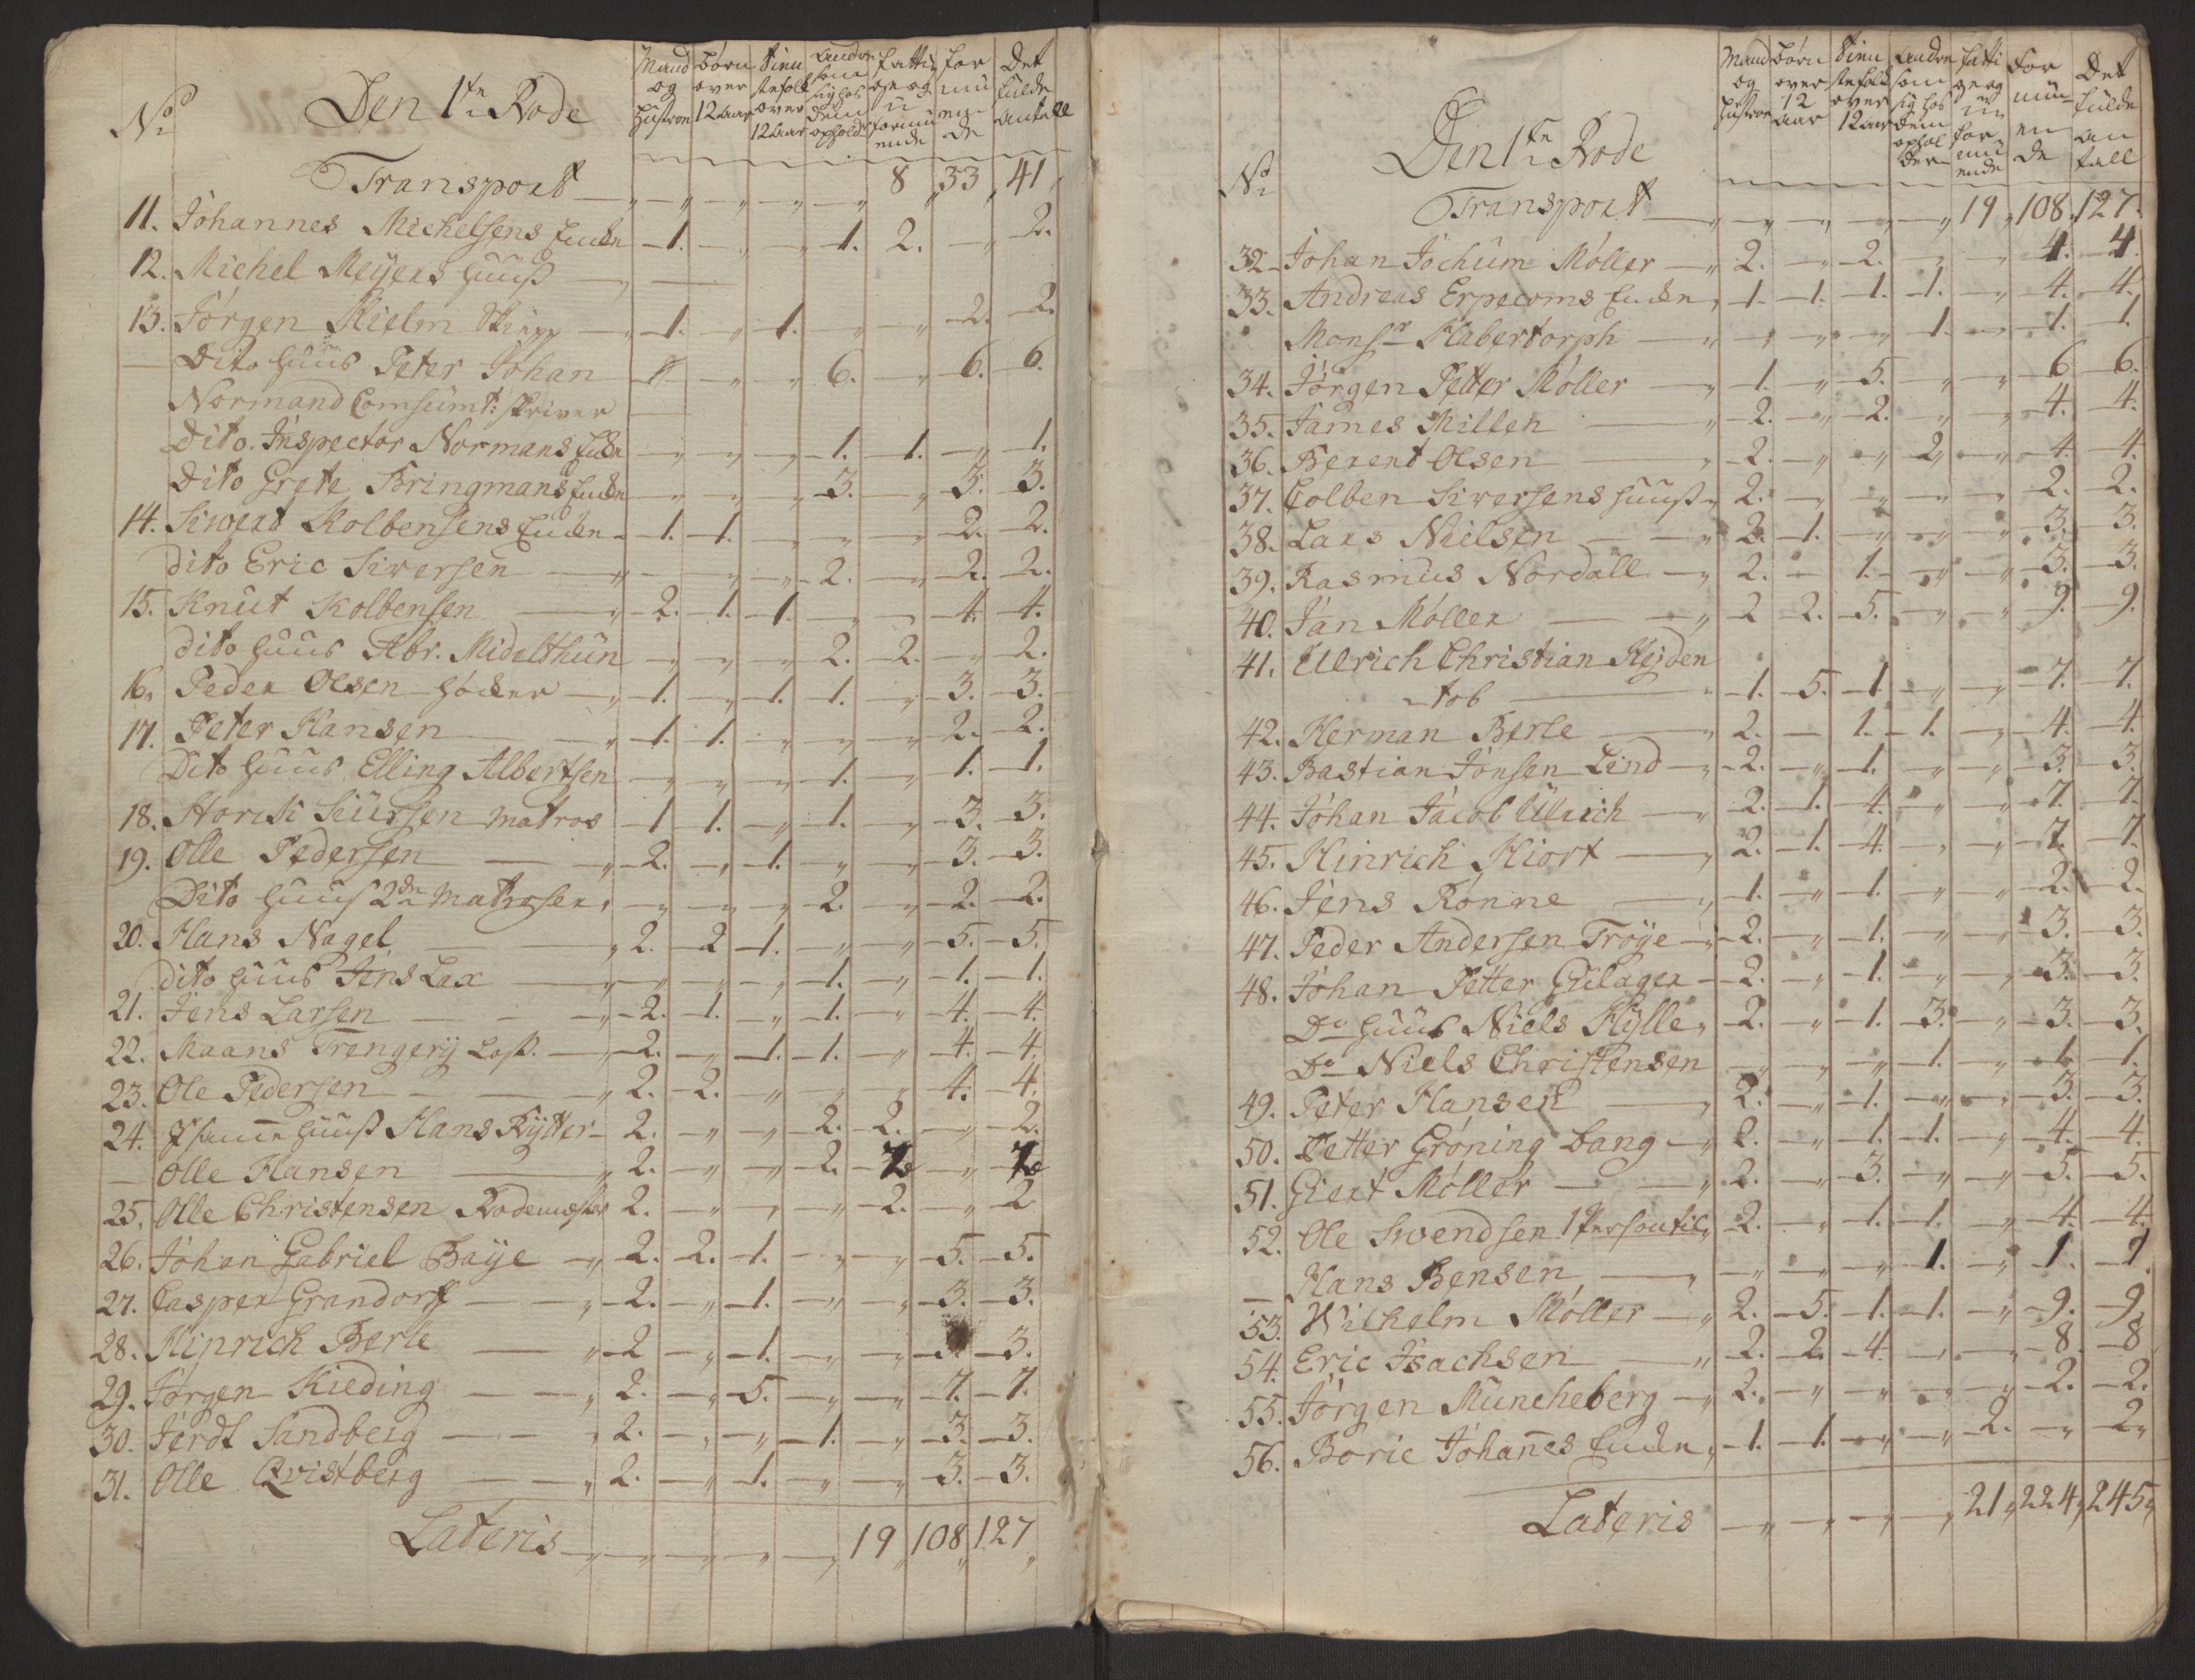 No Den 1te Rode
Mand og Hustroe
Børn over 12 aar
Tienestefolk over 12 aar
Andre som sig hos dem opholder
Fattige og uformuende
Formuende
Det fulde antall
Transport — 8 33 41
11. Johannes Michelsens Encke 1. 1. 2. 2.
12. Michel Meyers huuß
13. Jörgen Hielm 1. 1. 2. 2.
Dito huus Peter Johan 6. 6. 6.
Normand Comsumt: skriver
Dito. Inspector Normans Encke 1. 1. 1.
Dito Grete Bringmans Encke 3. 3. 3.
14. Siwert Kolbensens Encke 1. 1. 2. 2.
dito Eric Siversen 2. 2. 2.
15. Knut Kolbensen 2. 1. 1. 4. 4.
dito huus Abr. Midelthun 2. 2. 2.
16. Peder Olsen höcker 1. 1. 1. 3. 3.
17. Peter Hansen 1. 1. 2. 2.
Dito huus Elling Albertsen 1. 1. 1.
18. Siursen matros 1 1. 1. 3. 3.
19. Olle Pedersen 2. 1. 3. 3.
Dito huus 2de matroser 2. 2. 2.
20. Hans Nagel 2. 2 1. 5. 5.
dito huus Jens Lax 1. 1. 1.
21. Jens Larsen 2. 1. 1. 4. 4.
22. Maans Trengerij Loß. 2. 1. 1. 4. 4.
23. Ole Pedersen 2. 2. 4. 4.
24. J samme huuß Hans Rytter 2. 2. 2. 2.
Olle Hansen 2. 2.
25. Olle Christensen Rodemester 2. 2. 2
26. Johan Gabriel Baye 2. 2. 1. 5. 5.
27. Casper Grandorff 2. 1. 3. 3.
28. Hinrich Berle 2 1. 3. 3.
29. Jörgen Kieding 2. 5. 7. 7.
30. Jerdt Sandberg 2. 1. 3. 3.
31. Olle Qvistberg 2. 1. 3. 3.
Lateris 19 108 127
No Den 1te Rode
Mand og Hustroe
Børn over 12 aar
Tienestefolk over 12 aar
Andre som sig hos dem opholder
Fattige og uformuende
Formuende
Det fulde antall
Transport 19 108 127
32. Johan Jochum Möller 2. 2. 4. 4.
33. Andreas Erpecoms Encke 1. 1. 1. 1. 4. 4.
Monsr Habertorph 1. 1. 1.
34. Jörgen Petter Möller 1. 5. 6 6.
35. James Millen 2. 2. 4. 4.
36. Berent Olsen 2. 2. 4. 4.
37. Colben Siversens huuß 2. 2. 2.
38. Lars Nielsen 2. 1. 3. 3.
39. Rasmus Nordall 2. 1. 3. 3.
40. Jan Möller 2 2. 5. 9. 9.
41. Ullrich Christian Heyden
tob 1. 5. 1. 7. 7.
42. Herman Berle 2. 1. 1. 4. 4.
43. Bastian Jonsen Lind 2. 1. 3. 3.
44. Johan Jacob Ullrich 2. 1. 4. 7. 7.
45. Hinrich Hiort 2. 1. 4. 7. 7.
46. Jens Rönne 1. 1. 2. 2.
47. Peder Andersen Tröye 2. 1. 3. 3.
48. Johan Petter Gülager 2. 1. 3. 3.
Do huus Niels Hylle 2. 1. 3. 3. 3.
Do Niels Christensen 1. 1. 1.
49. Peter Hansen 2. 1. 3. 3.
50. Petter Gröning bang 2. 1. 1. 4. 4.
51. Giert Möller 2. 3. 5. 5.
52. Ole Swendsen 2. 1. 1. 4. 4.
Hans Bensen 1. 1. 1.
53. Wilhelm Möller 2. 5. 1. 1. 9. 9.
54. Eric Isachsen 2. 2. 4. 8. 8
55. Jörgen Müncheberg 2. 2. 2.
56. Borie Johanes Encke 1. 1. 2. 2
Lateris 21 224 245